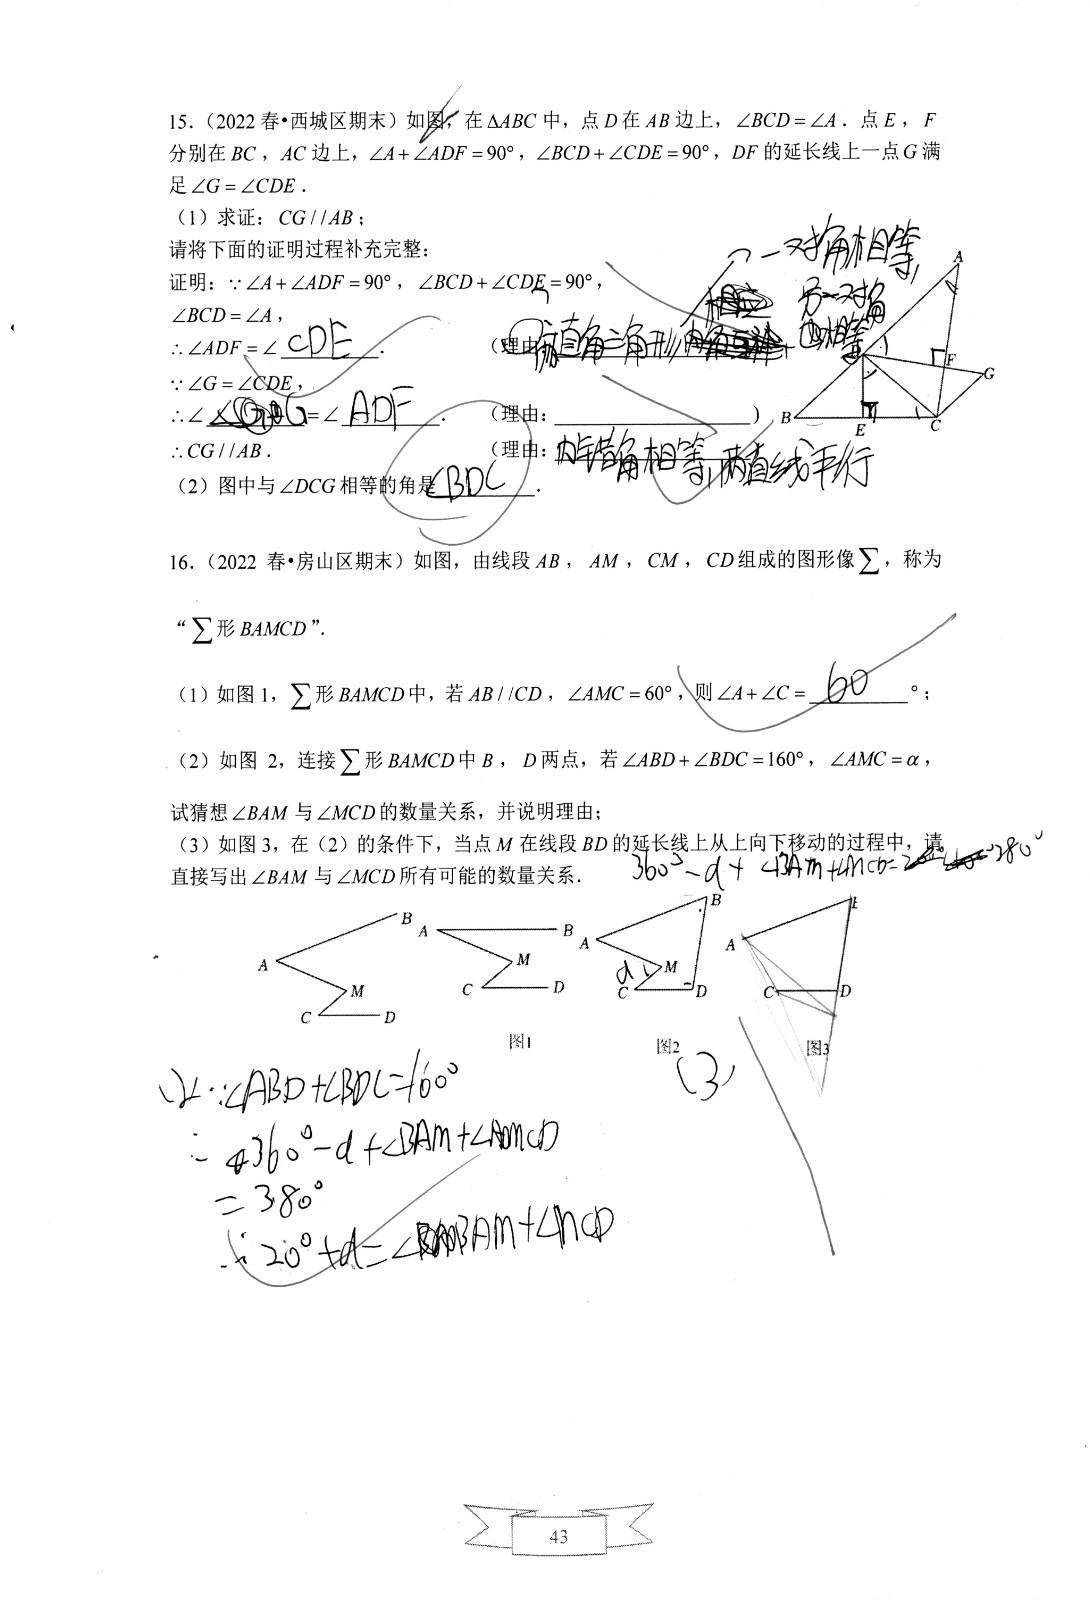 15.（2022 春•西城区期末）如图，在 ΔABC 中，点 D 在 AB 边上，∠BCD = ∠A．点 E，F
分别在 BC，AC 边上，∠A + ∠ADF = 90°，∠BCD + ∠CDE = 90°，DF 的延长线上一点 G 满
足 ∠G = ∠CDE．
（1）求证：CG / / AB；
请将下面的证明过程补充完整：
一对角相等，
证明：∵ ∠A + ∠ADF = 90°，∠BCD + ∠CDE = 90°，
∠BCD = ∠A，
另一对角
∴ ∠ADF = ∠ CDE ．（理由 直角三角形 相等
∵ ∠G = ∠CDE，
∴ ∠ G = ∠ ADF ．（理由：）
∴ CG / / AB．（理由：内错角相等，两直线平行
（2）图中与 ∠DCG 相等的角是 ∠BDC ．
A
F
G
B
E
C
16.（2022 春•房山区期末）如图，由线段 AB，AM，CM，CD 组成的图形像 ∑，称为
“∑形 BAMCD”．
（1）如图 1，∑形 BAMCD 中，若 AB / / CD，∠AMC = 60°，则 ∠A + ∠C = 60 °；
（2）如图 2，连接 ∑形 BAMCD 中 B，D 两点，若 ∠ABD + ∠BDC = 160°，∠AMC = α，
试猜想 ∠BAM 与 ∠MCD 的数量关系，并说明理由；
（3）如图 3，在（2）的条件下，当点 M 在线段 BD 的延长线上从上向下移动的过程中，请
直接写出 ∠BAM 与 ∠MCD 所有可能的数量关系．
360° - α + ∠BAM + ∠MCD = 380°
B
A
M
C
D
A
B
M
C
D
图1
B
A
α
M
C
D
图2
A
C
D
图3
(2) ∵ ∠ABD + ∠BDC = 160°
∴ 360° - α + ∠BAM + ∠MCD
= 380°
∴ 20° + α = ∠BAM + ∠MCD
(3)
43